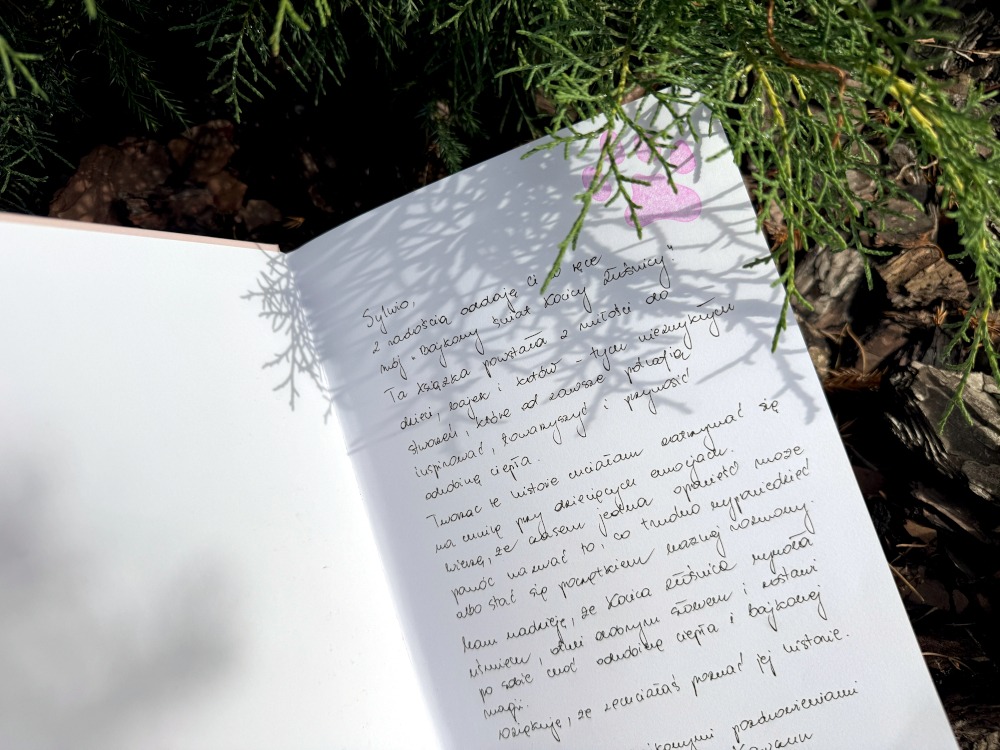 Sylwio,
z radością oddaję Ci w ręce
mój „Bajkowy świat Kocicy Złośnicy."
Ta książka powstała z miłości do
dzieci, bajek i kotów – tych niezwykłych
stworzeń, które od zawsze potrafią
inspirować, towarzyszyć i przynosić
odrobinę ciepła.
Tworząc te historie chciałam zatrzymać się
na chwilę przy dziecięcych emocjach.
Wierzę, że czasem jedna opowieść może
pomóc nazwać to, co trudno wypowiedzieć
albo stać się początkiem ważnej rozmowy.
Mam nadzieję, że Kocica Złośnica wywoła
uśmiech, otuli dobrym słowem i zostawi
po sobie choć odrobinę ciepła i bajkowej
magii.
Dziękuję, że zechciałaś poznać jej historie.
pozdrowieniami